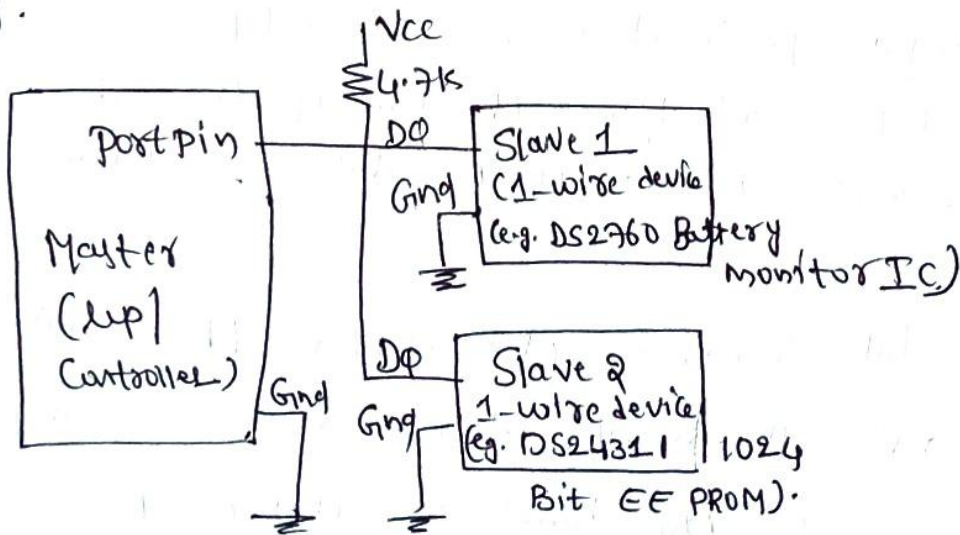 Vcc
4.7K
Port pin
DQ
Slave 1
(1-wire device
(e.g. DS2760 Battery
monitor IC)
Gnd
Master
(μp/
Controller)
Gnd
DQ
Slave 2
1-wire device
(eg. DS2431 1024
Bit EEPROM).
Gnd